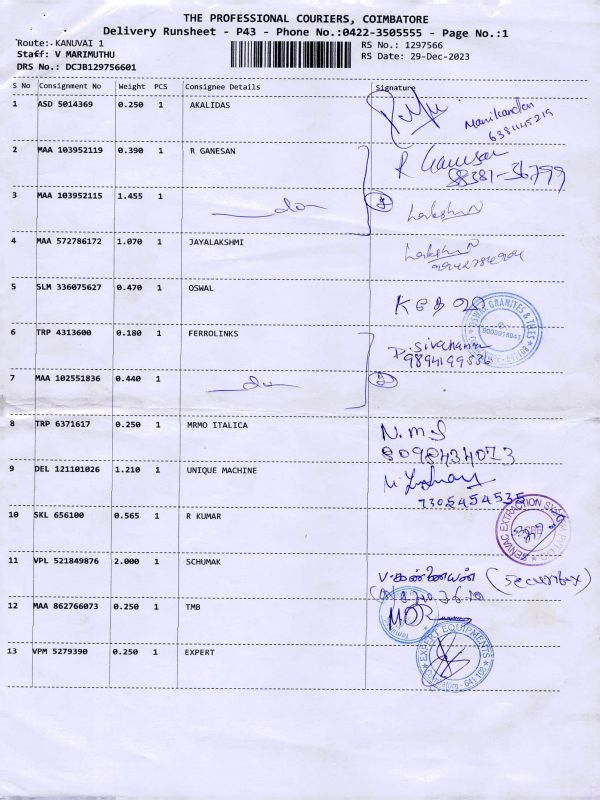 THE PROFESSIONAL COURIERS, COIMBATORE
Delivery Runsheet - P43 - Phone No.:0422-3505555 - Page No.:1
Route: KANUVAI 1
Staff: V MARIMUTHU
DRS No.: DCJB129756601
RS No.: 1297566
RS Date: 29-Dec-2023
S No Consignment No Weight PCS Consignee Details Signature
1 ASD 5014369 0.250 1 AKALIDAS
Manikandan
6381145219
2 MAA 103952119 0.390 1 R GANESAN R Ganesan
88381-36799
3 MAA 103952115 1.455 1 do
4 MAA 572786172 1.070 1 JAYALAKSHMI
5 SLM 336075627 0.470 1 OSWAL
OSWAL GRANITES & TILES
6 TRP 4313600 0.180 1 FERROLINKS
9894199536
7 MAA 102551836 0.440 1 do
8 TRP 6371617 0.250 1 MRMO ITALICA N.M.S
8098434073
9 DEL 121101026 1.210 1 UNIQUE MACHINE
7305454535
10 SKL 656100 0.565 1 R KUMAR
11 VPL 521849876 2.000 1 SCHUMAK V. கண்ணையன் (Security)
12 MAA 862766073 0.250 1 TMB
13 VPM 5279390 0.250 1 EXPERT
EXPERT EQUIPMENTS